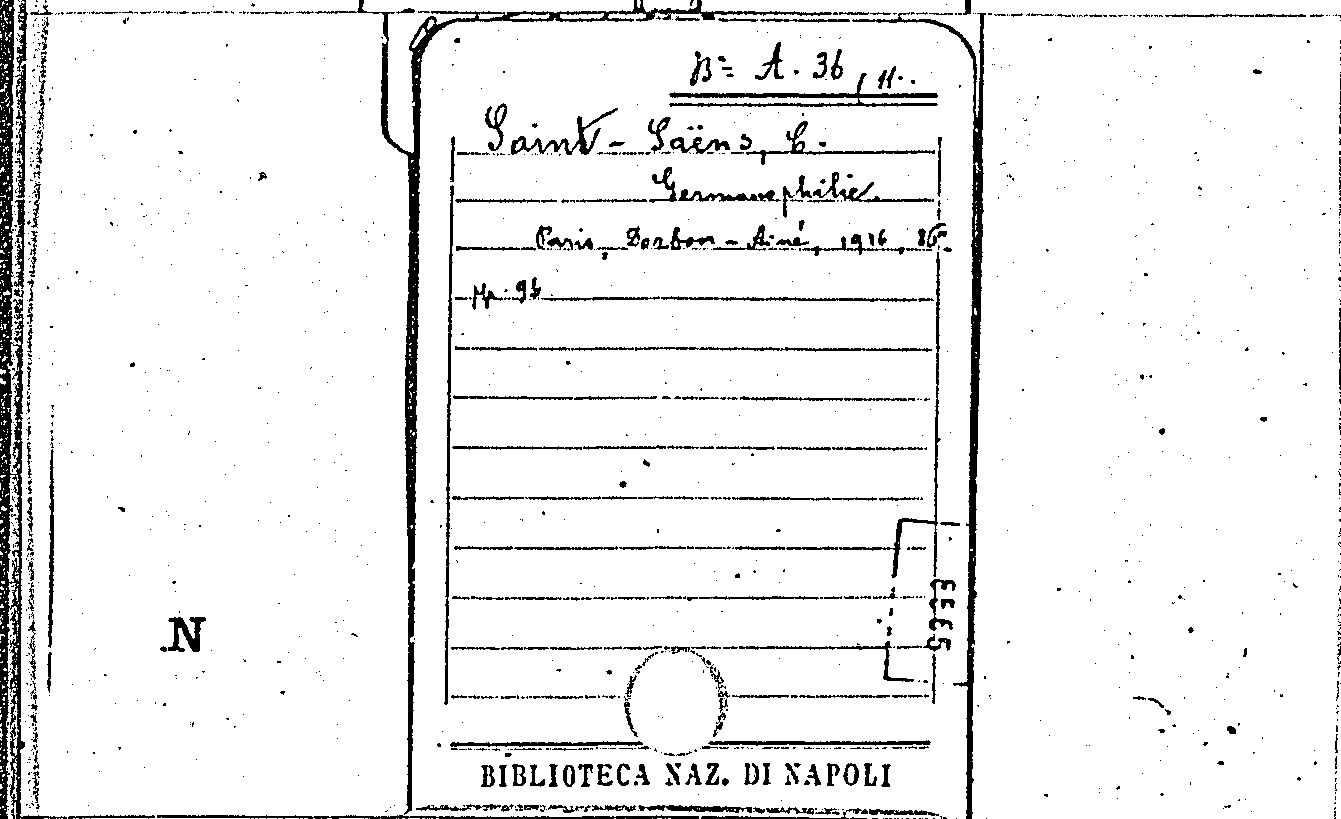 Bª A. 36
Saint-Saëns, C.
Germanophilie.
Paris, Dorbon-Ainé, 1916, 16º.
pp. 96
N
BIBLIOTECA NAZ. DI NAPOLI